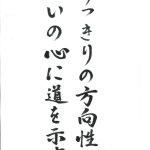 っきりの方向性
いの心に道を示